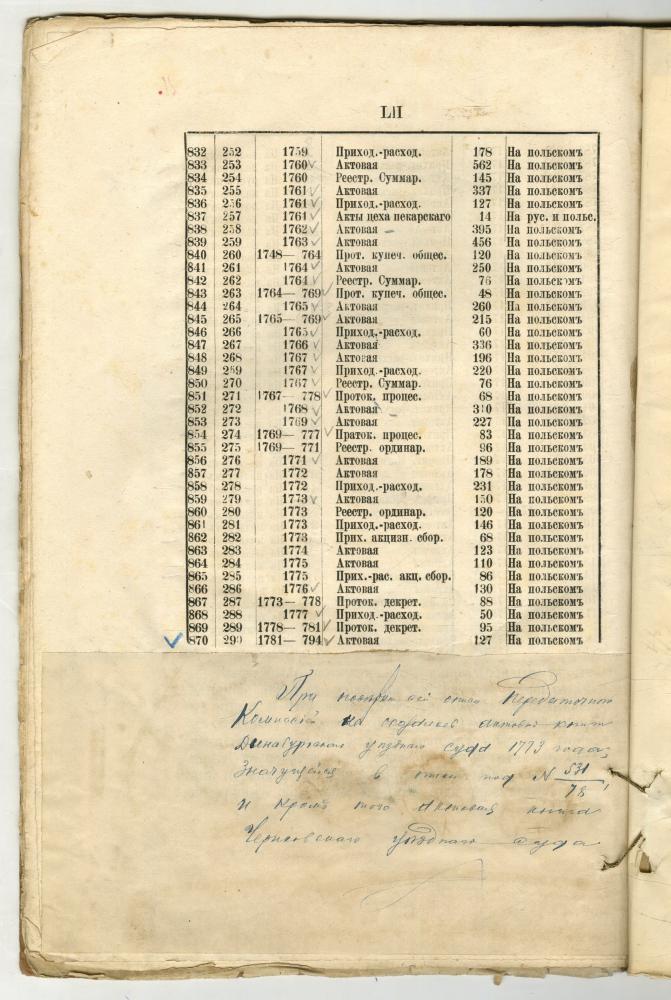 LII
832 252 1759 Приход.-расход. 178 На польскомъ
833 253 1760 Актовая 562 На польскомъ
834 254 1760 Реестр. Суммар. 145 На польскомъ
835 255 1761 Актовая 337 На польскомъ
836 256 1761 Приход.-расход. 127 На польскомъ
837 257 1761 Акты цеха пекарскаго 14 На рус. и польс.
838 258 1762 Актовая 395 На польскомъ
839 259 1763 Актовая 456 На польскомъ
840 260 1748— 764 Прот. купеч. общес. 120 На польскомъ
841 261 1764 Актовая 250 На польскомъ
842 262 1764 Реестр. Суммар. 76 На польскомъ
843 263 1764— 769 Прот. купеч. общес. 48 На польскомъ
844 264 1765 Актовая 260 На польскомъ
845 265 1765— 769 Актовая 215 На польскомъ
846 266 1765 Приход.-расход. 60 На польскомъ
847 267 1766 Актовая 336 На польскомъ
848 268 1767 Актовая 196 На польскомъ
849 269 1767 Приход.-расход. 220 На польскомъ
850 270 1767 Реестр. Суммар. 76 На польскомъ
851 271 1767— 778 Проток. процес. 68 На польскомъ
852 272 1768 Актовая 310 На польскомъ
853 273 1769 Актовая 227 На польскомъ
854 274 1769— 777 Праток. процес. 83 На польскомъ
855 275 1769— 771 Реестр. ординар. 96 На польскомъ
856 276 1771 Актовая 189 На польскомъ
857 277 1772 Актовая 178 На польскомъ
858 278 1772 Приход.-расход. 231 На польскомъ
859 279 1773 Актовая 150 На польскомъ
860 280 1773 Реестр. ординар. 120 На польскомъ
861 281 1773 Приход.-расход. 146 На польскомъ
862 282 1773 Прих. акцизн. сбор. 68 На польскомъ
863 283 1774 Актовая 123 На польскомъ
864 284 1775 Актовая 110 На польскомъ
865 285 1775 Прих.-рас. акц. сбор. 86 На польскомъ
866 286 1776 Актовая 130 На польскомъ
867 287 1773— 778 Проток. декрет. 88 На польскомъ
868 288 1777 Приход.-расход. 50 На польскомъ
869 289 1778— 781 Проток. декрет. 95 На польскомъ
870 290 1781— 794 Актовая 127 На польскомъ
При сей описи
Комиссіей не актовой книги
Динабургскаго уѣзднаго суда 1773 года,
Значущейся в описи под N 531/78,
и кромѣ того Актовая книга
уѣзднаго суда